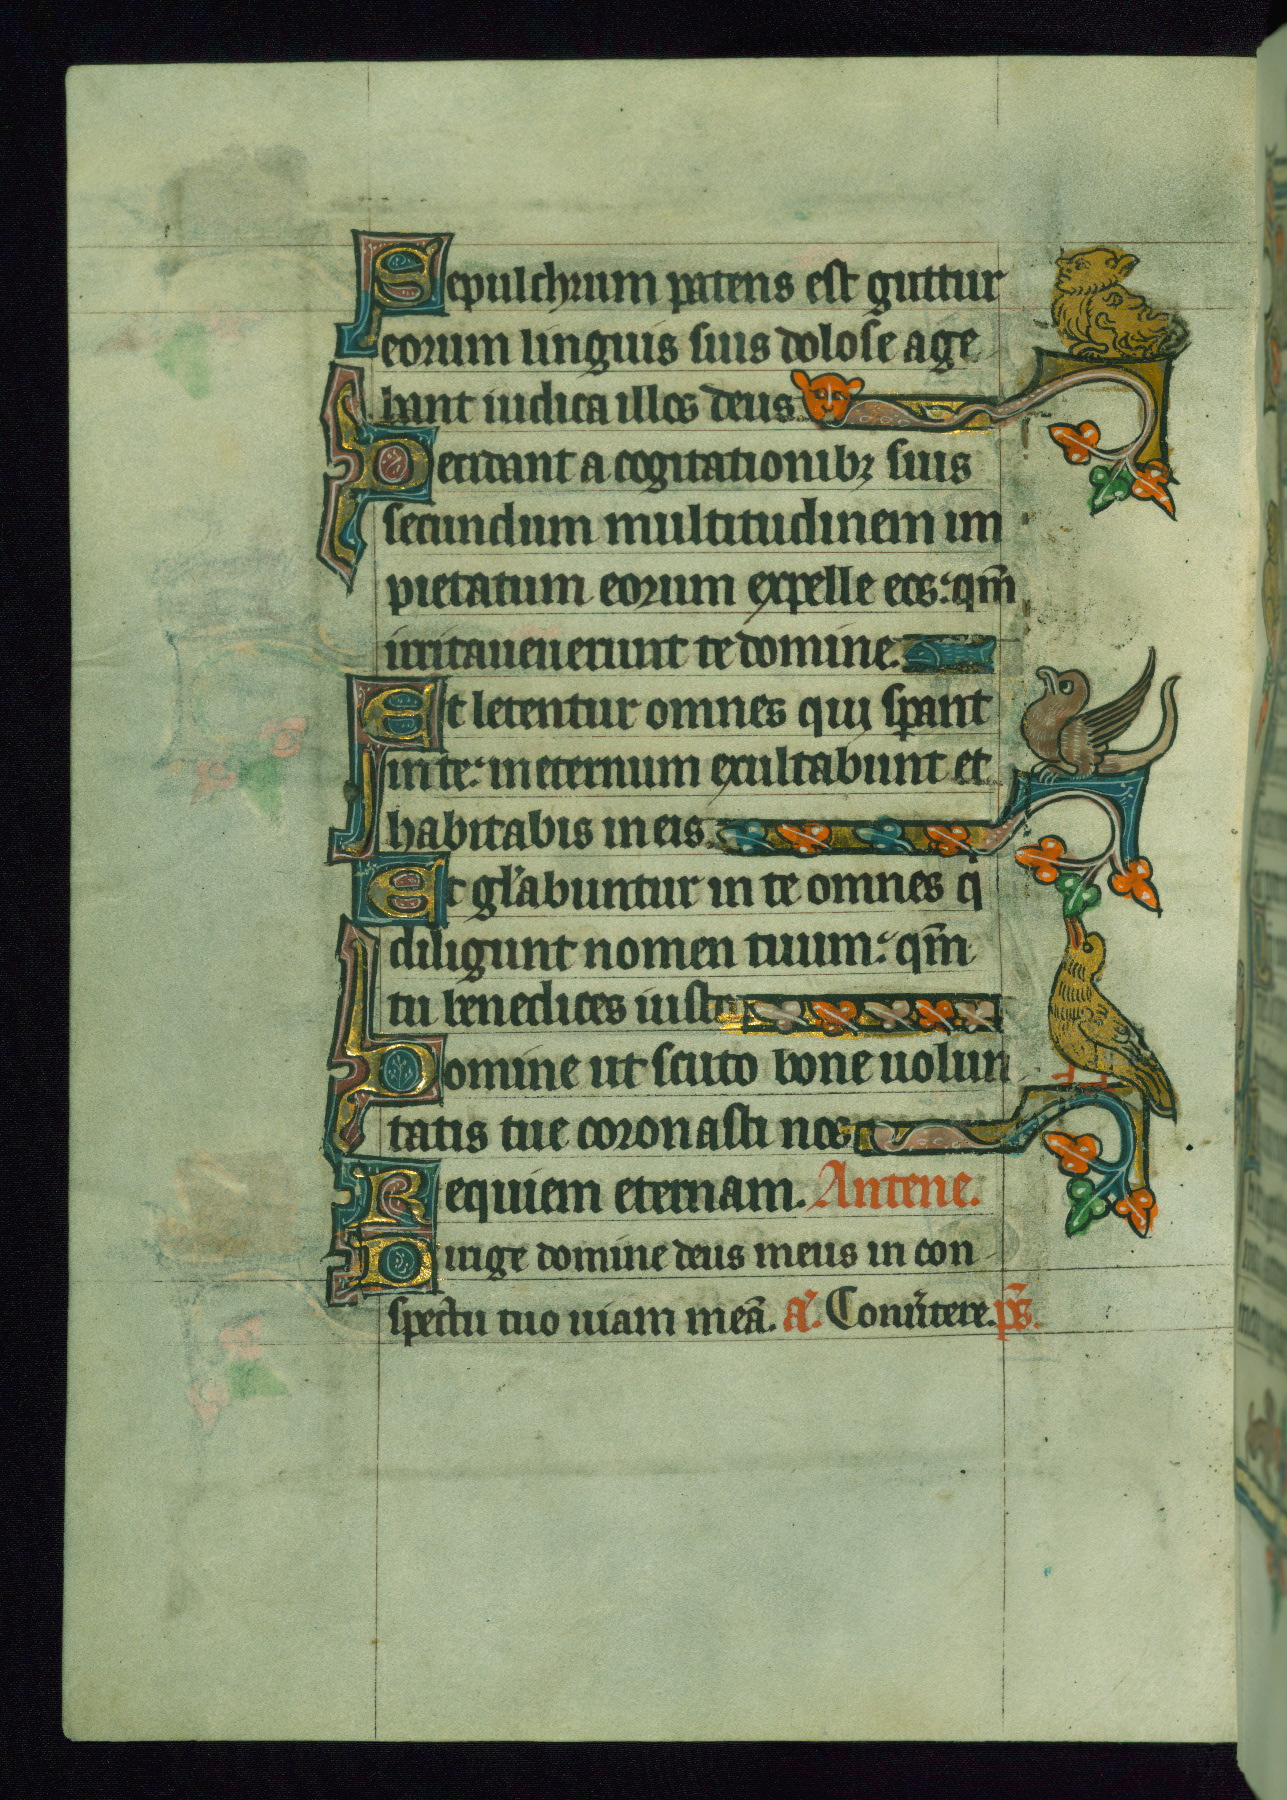 Sepulchrum patens est guttur
eorum linguis suis dolose age
bant iudica illos deus
Decidant a cogitationibꝫ suis
secundum multitudinem im
pietatum eorum expelle eos: qm̄
irritaueuerunt te domine.
Et letentur omnes qui sꝑant
in te: in eternum exultabunt et
habitabis in eis.
Et gl'abuntur in te omnes q
diligunt nomen tuum: qm̄
tu benedices iusto
Domine ut scuto bone uolun
tatis tue coronasti nos
Requiem eternam. Antene.
Dirige domine deus meus in con
spectu tuo uiam meā. a'. Conu'tere. ps̄.